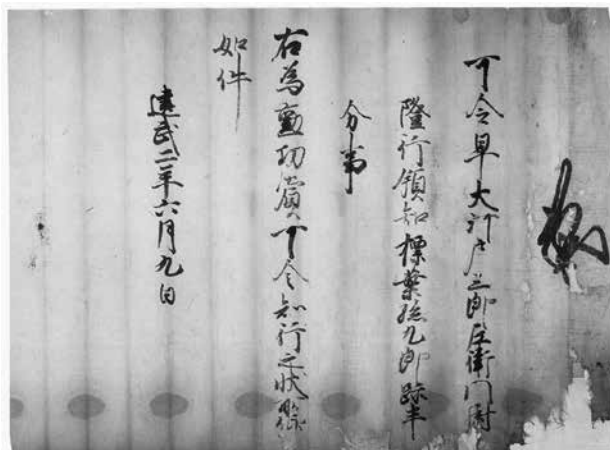 可令早大河戸三郎左衛門尉
隆行領知標葉孫九郎跡半
分事
右為勳功賞可令知行之状所仰
如件
建武二年六月九日